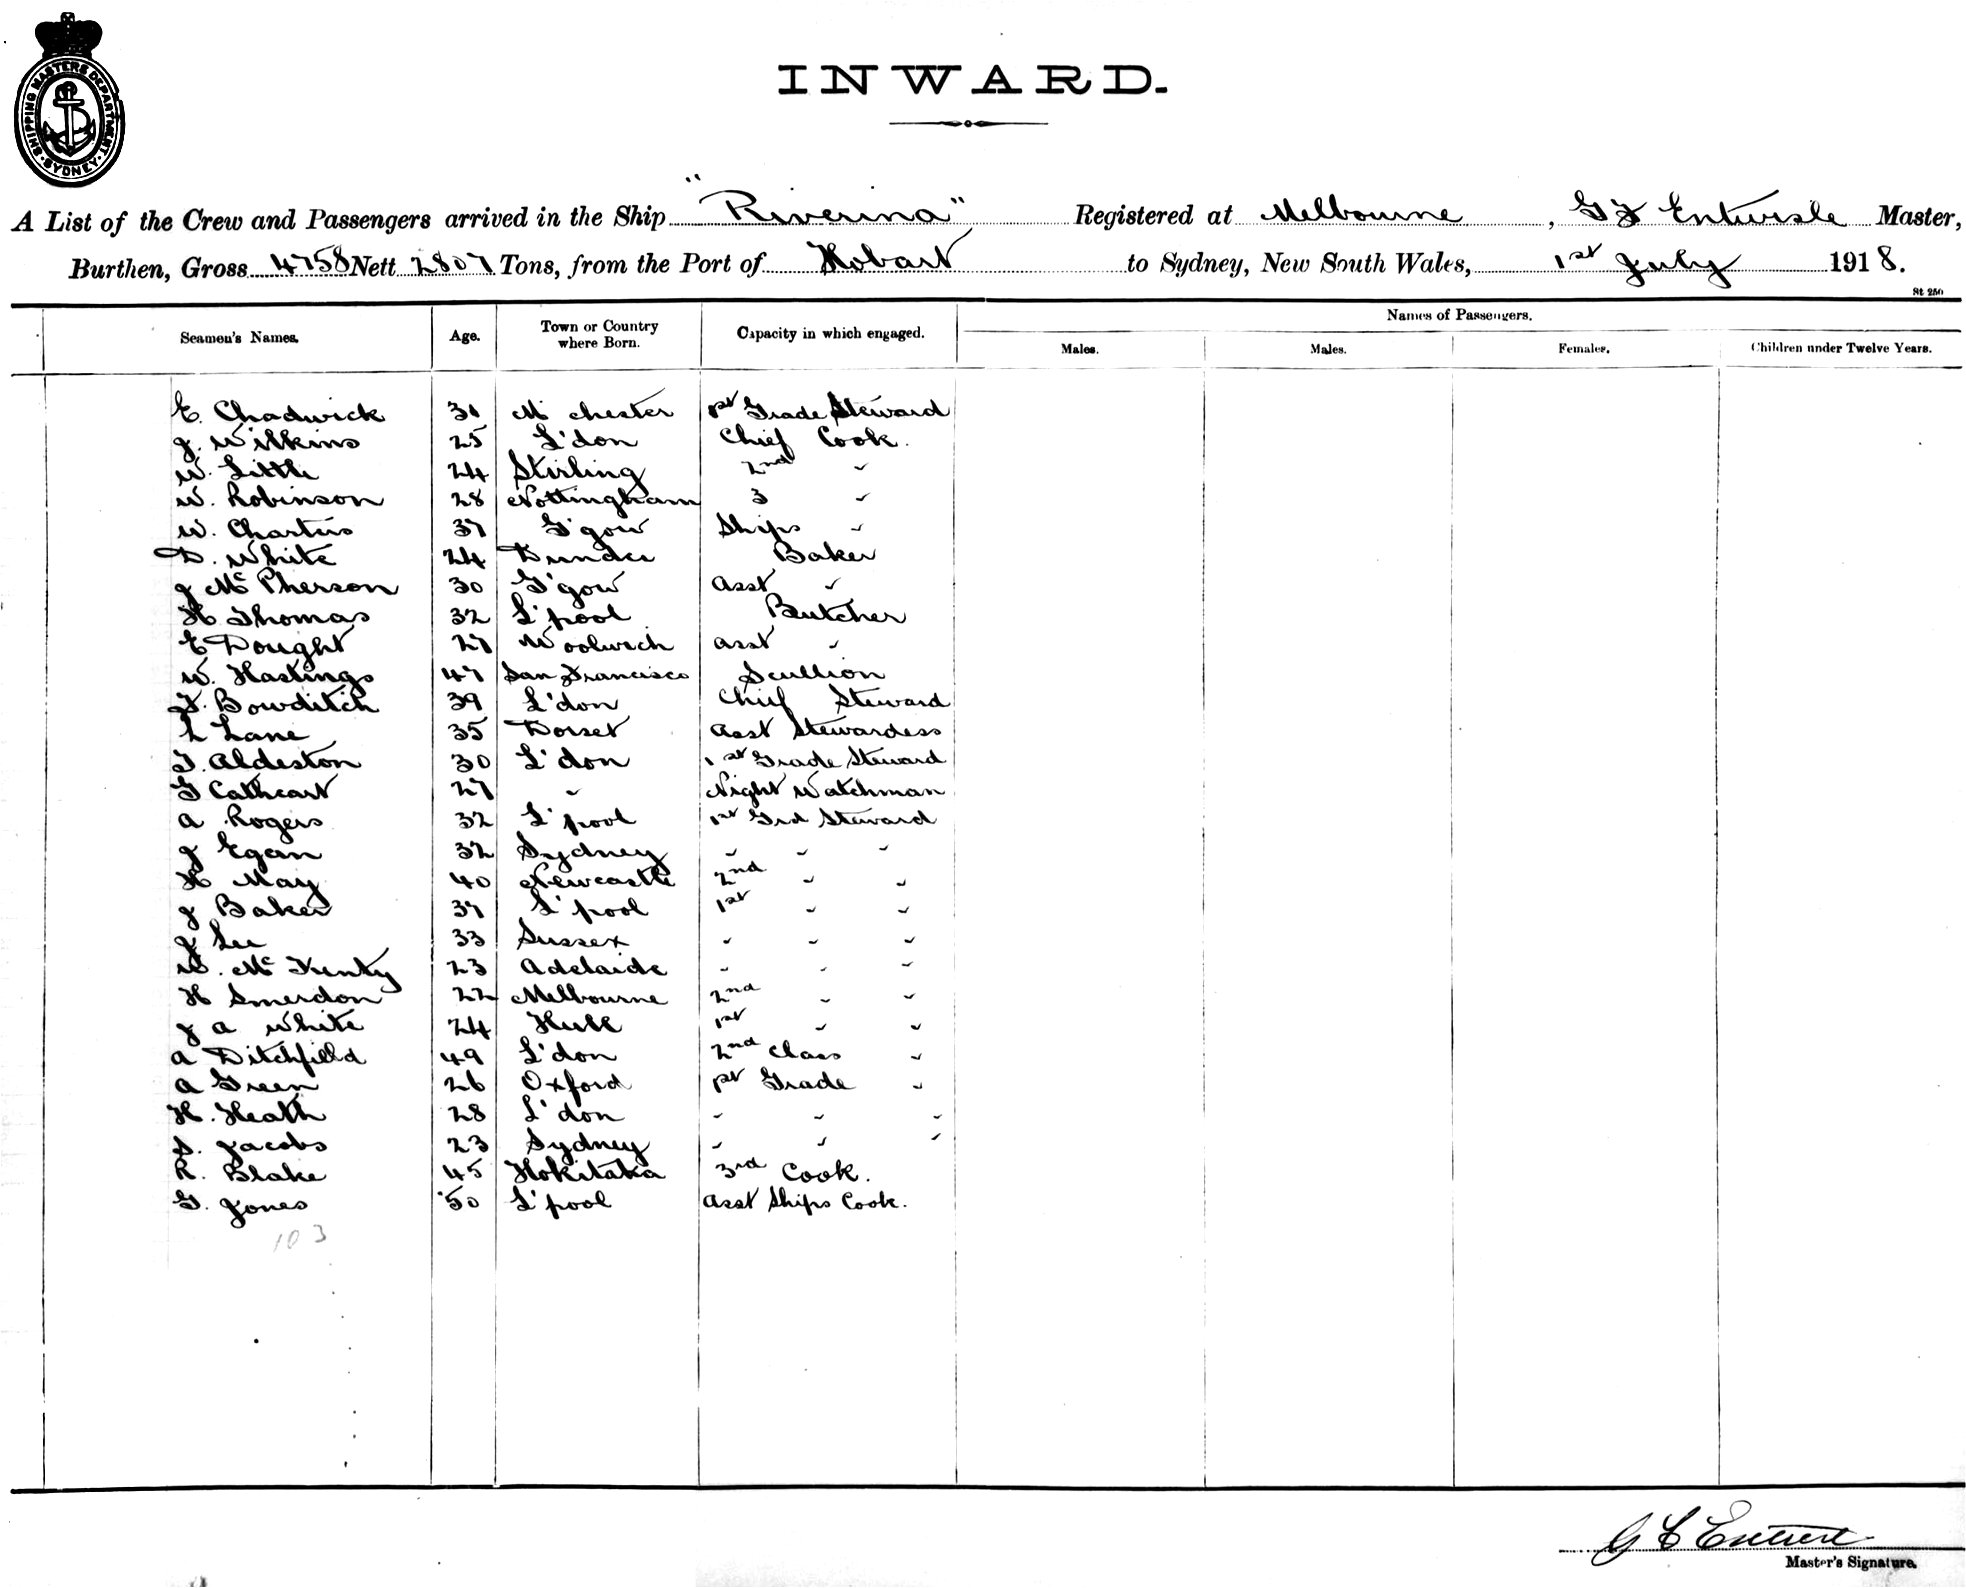 SHIPPING MASTERS DEPARTMENT · SYDNEY ·
INWARD.
A List of the Crew and Passengers arrived in the Ship "Riverina" Registered at Melbourne, G F Entwisle Master,
Burthen, Gross 4758 Nett 2807 Tons, from the Port of Hobart to Sydney, New South Wales, 1st July 1918.
St 250
Names of Passengers.
Seamen's Names. Age. Town or Country where Born. Capacity in which engaged. Males. Males. Females. Children under Twelve Years.
E. Chadwick 31 M'chester 1st Grade Steward
J. Wilkins 25 L'don Chief Cook.
W. Little 24 Stirling 2nd "
W. Robinson 28 Nottingham 3 "
W. Charters 37 G'gow Ships "
D. White 24 Dundee Baker
J McPherson 30 G'gow Asst "
H Thomas 32 L'pool Butcher
E Dought 27 Woolwich Asst "
W. Hastings 47 San Francisco Scullion
F. Bowditch 39 L'don Chief Steward
L Lane 35 Dorset Asst Stewardess
F. Aldeston 30 L'don 1st Grade Steward
G Cathcart 27 " Night Watchman
A Rogers 32 L'pool 1st Grd Steward
J Egan 32 Sydney " " "
H May 40 Newcastle 2nd " "
J Baker 37 L'pool 1st " "
J Lee 33 Sussex " " "
W. Mc 23 Adelaide " " "
H Smerdon 22 Melbourne 2nd " "
J A White 24 Hull 1st " "
A Ditchfield 49 L'don 2nd Class "
A Green 26 Oxford 1st Grade "
H. Heath 28 L'don " " "
S. Jacobs 23 Sydney " " "
R. Blake 45 Hokitaka 3rd Cook.
G. Jones 50 L'pool Asst Ships Cook.
103
Master's Signature.